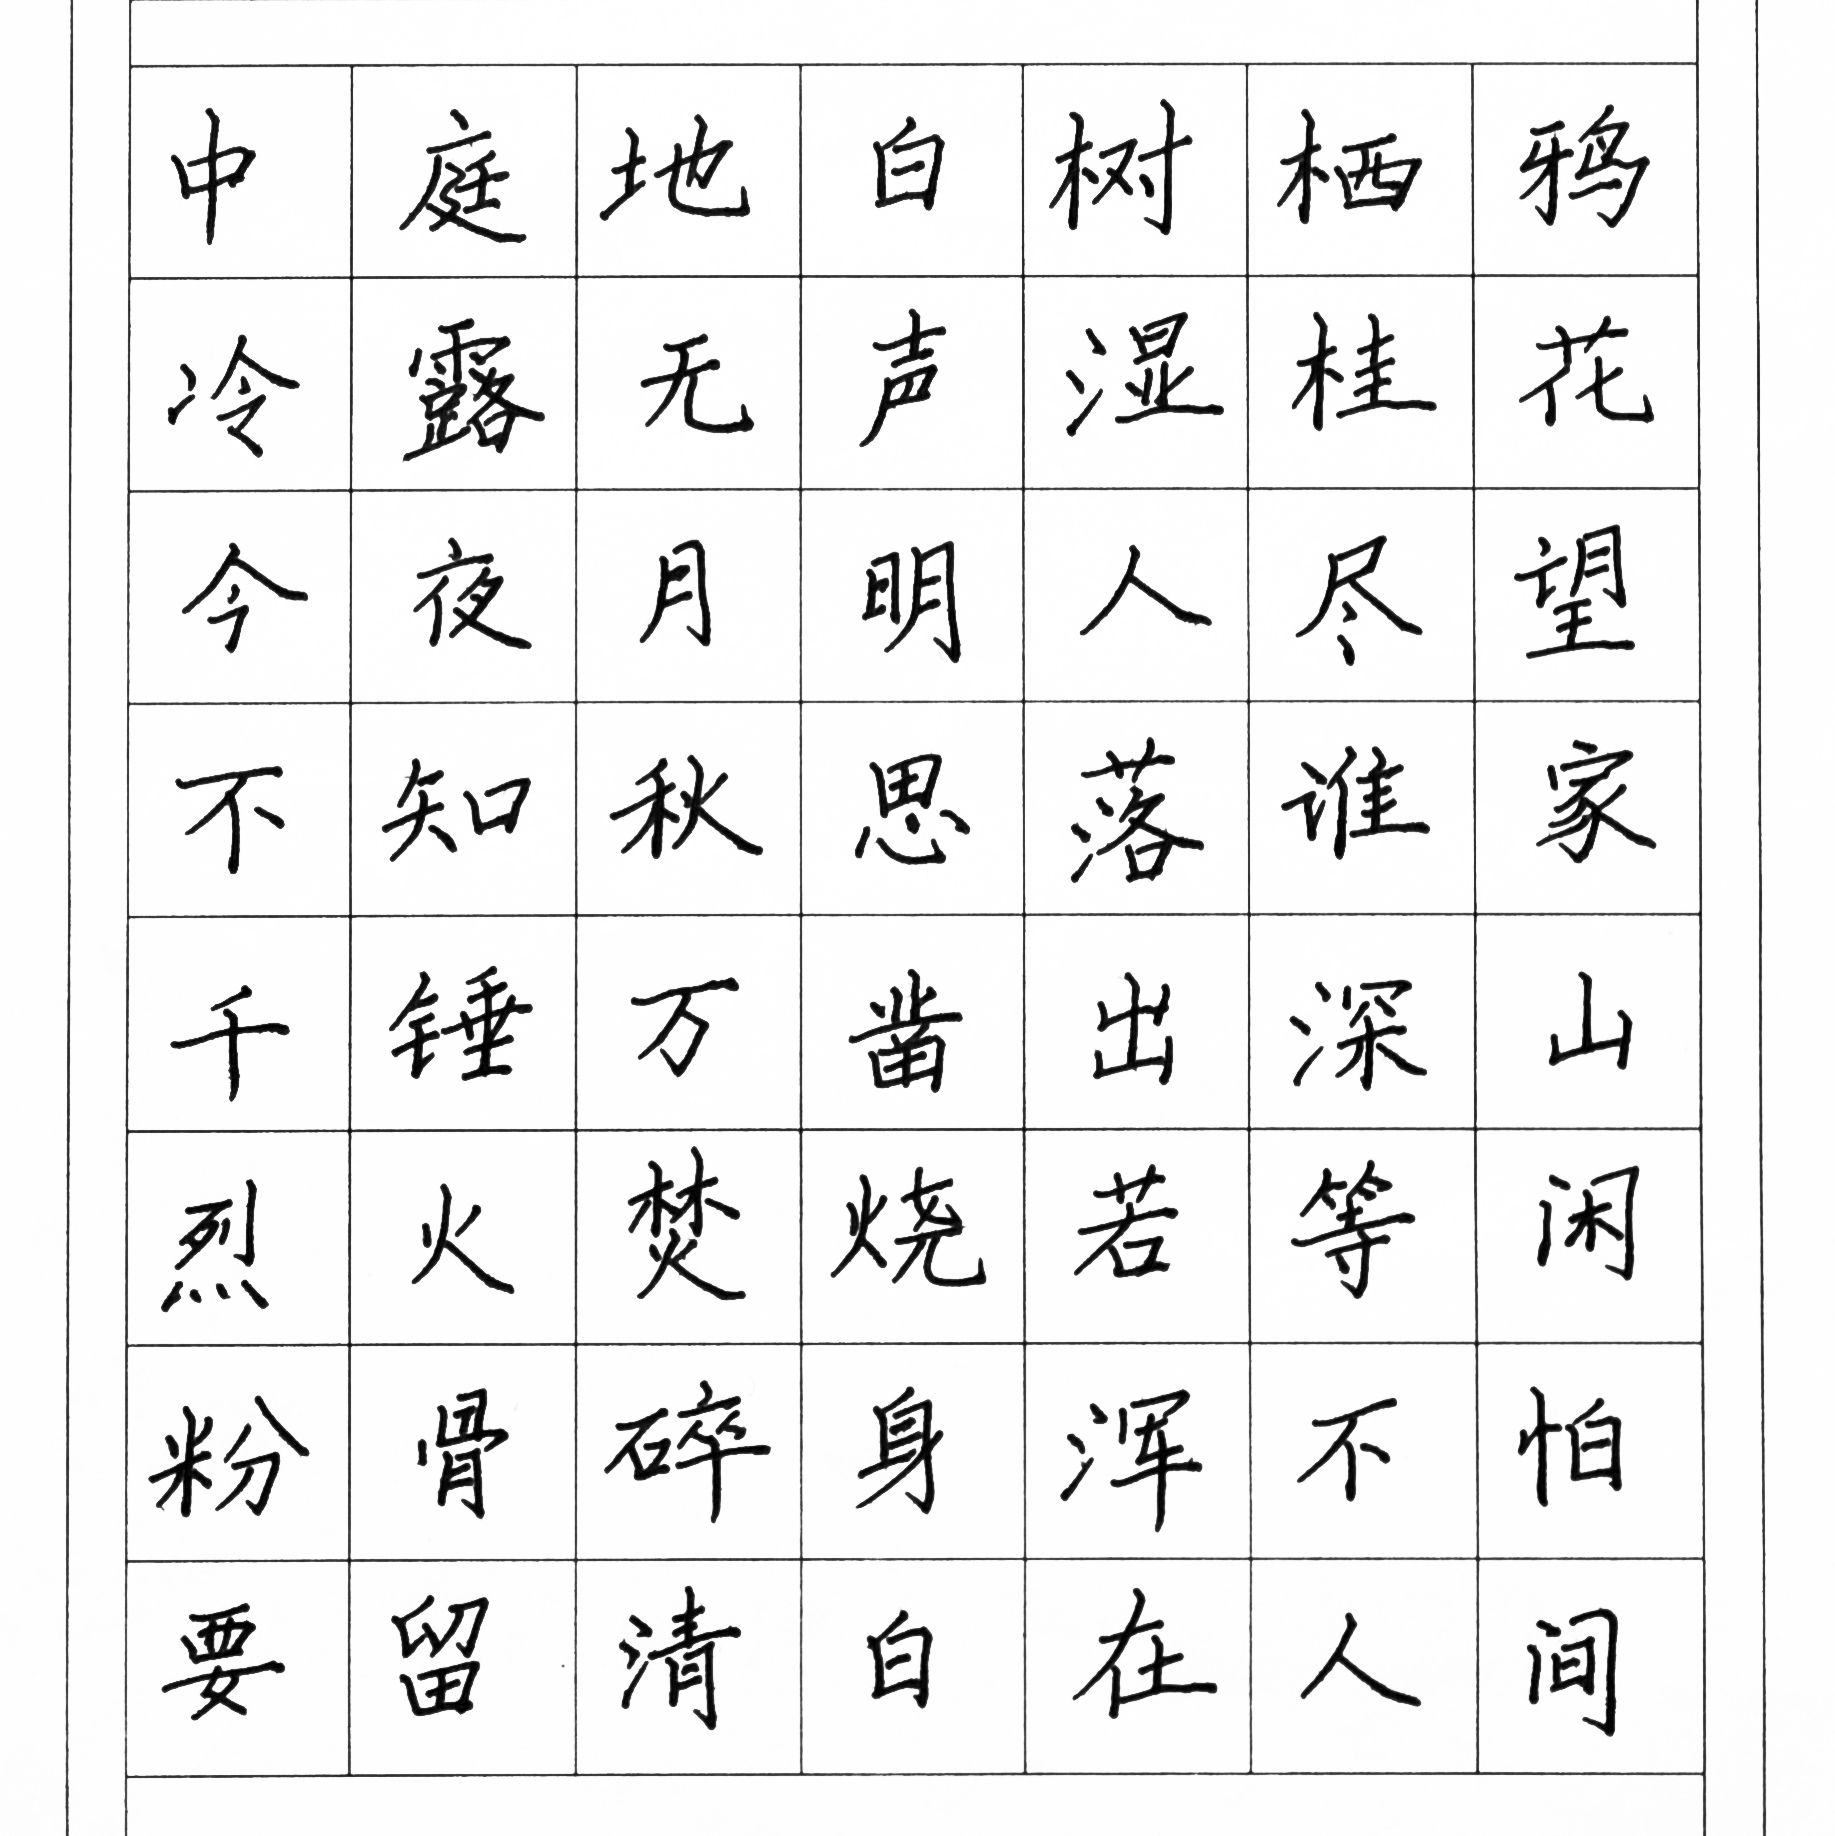 中庭地白树栖鸦
冷露无声湿桂花
今夜月明人尽望
不知秋思落谁家
千锤万凿出深山
烈火焚烧若等闲
粉骨碎身浑不怕
要留清白在人间